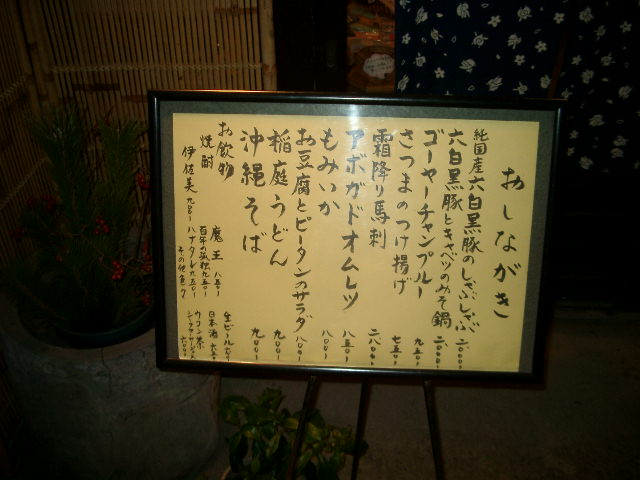 おしながき
純国産六白黒豚のしゃぶしゃぶ 二、〇〇〇
六白黒豚とキャベツのみそ鍋 二、〇〇〇
ゴーヤーチャンプルー 九五〇
さつまのつけ揚げ 七五〇
霜降り馬刺 二、八〇〇
アボガドオムレツ 八五〇
もみいか 八〇〇
お豆腐とピータンのサラダ 八〇〇
稲庭うどん 九〇〇
沖縄そば 九〇〇
お飲物
焼酎
魔王 八五〇
百年の孤独 九五〇
伊佐美 九〇〇
ハナタレ 九五〇
その他色々
生ビール
日本酒
ウコン茶